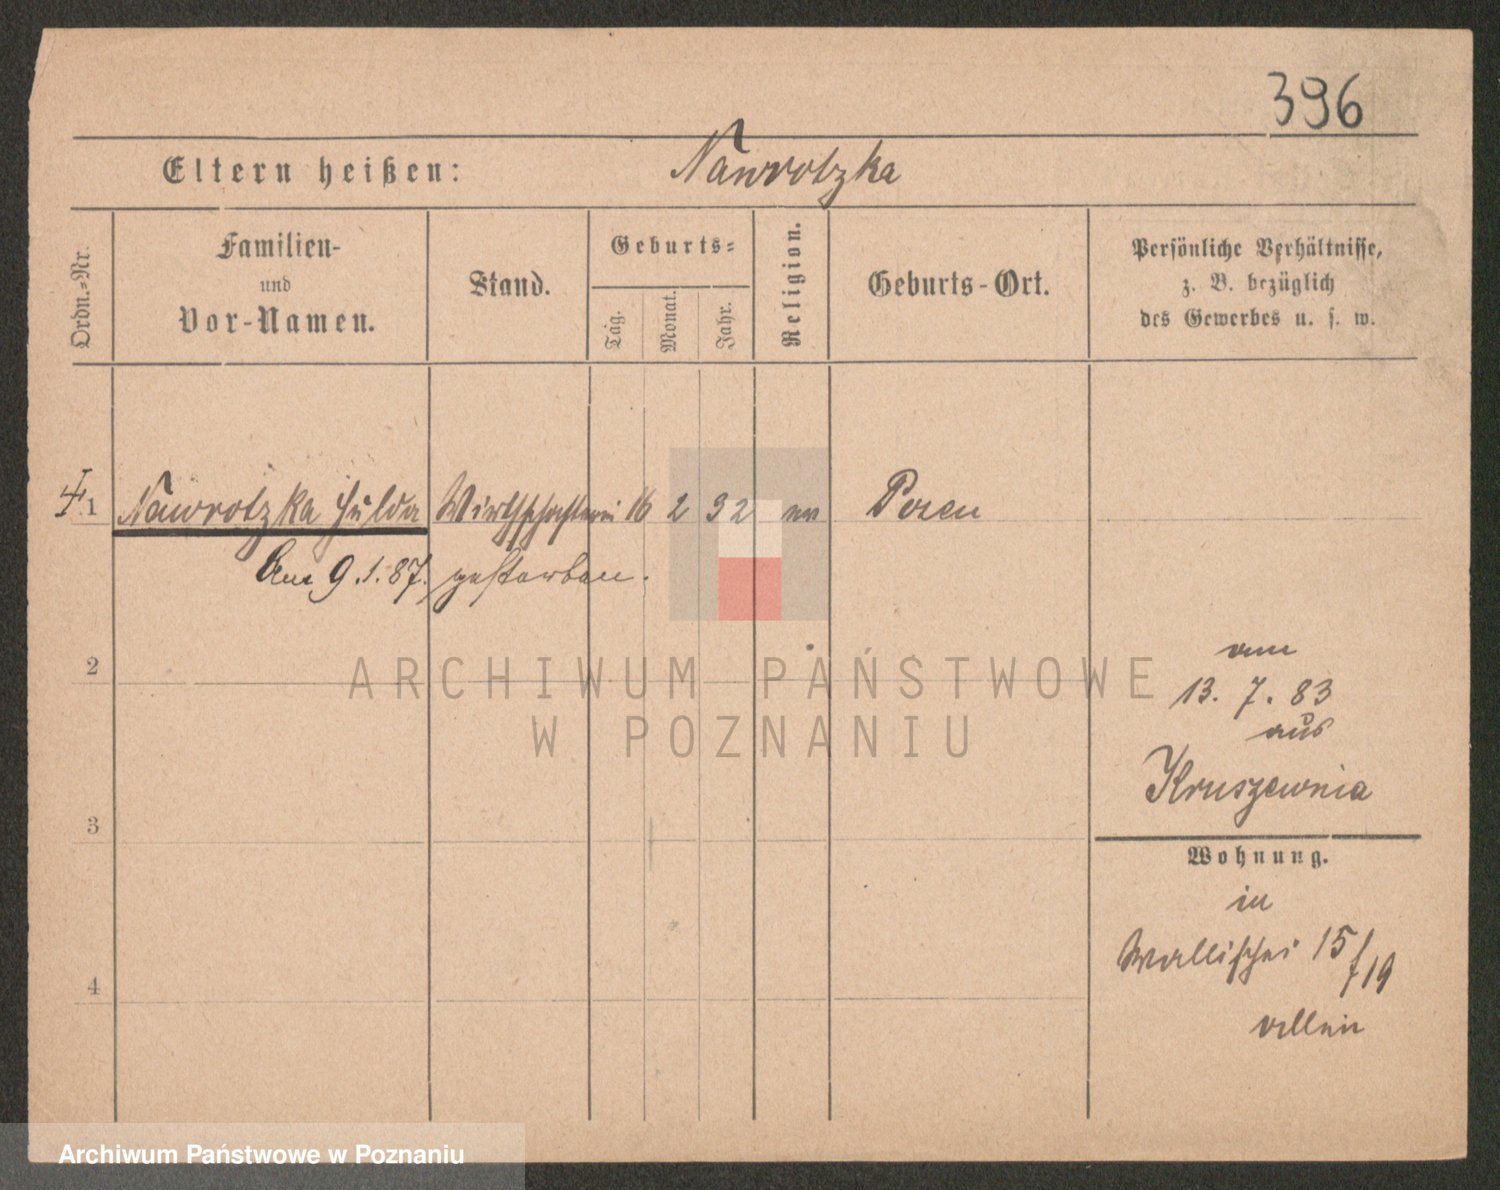 396
Eltern heißen: Nawrotzka
Ordn.-Nr.
Familien-
und
Vor-Namen.
Stand.
Geburts-
Tag.
Monat.
Jahr.
Religion.
Geburts-Ort.
Persönliche Verhältnisse,
z. B. bezüglich
des Gewerbes u. s. w.
1 Nawrotzka Hulda Wirthschafterin 16 2 32 Posen
Am 9.1.87. gestorben.
2
am
13. 7. 83
aus
Kruszewnia
3
Wohnung.
in
Wallischei 15/19
allein
4
ARCHIWUM PAŃSTWOWE
W POZNANIU
Archiwum Państwowe w Poznaniu